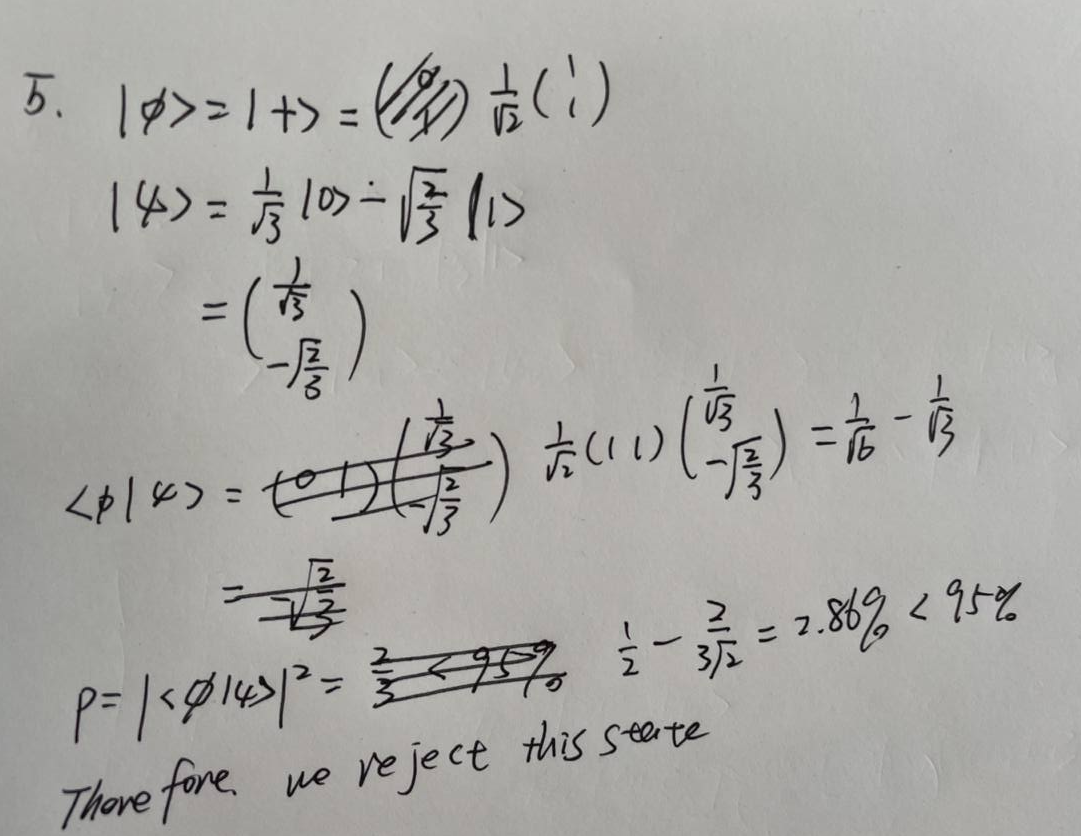 5. |φ> = |+> = 1/√2 (1 1)
|ψ> = 1/√3 |0> - √(2/3) |1>
= (1/√3 -√(2/3))
<φ|ψ> = (0 1)(1/√3 -√(2/3)) 1/√2 (1 1)(1/√3 -√(2/3)) = 1/√6 - 1/√3
= -√(2/3)
P = |<φ|ψ>|² = 2/3 < 95% 1/2 - 2/(3√2) = 2.86% < 95%
Therefore. we reject this state